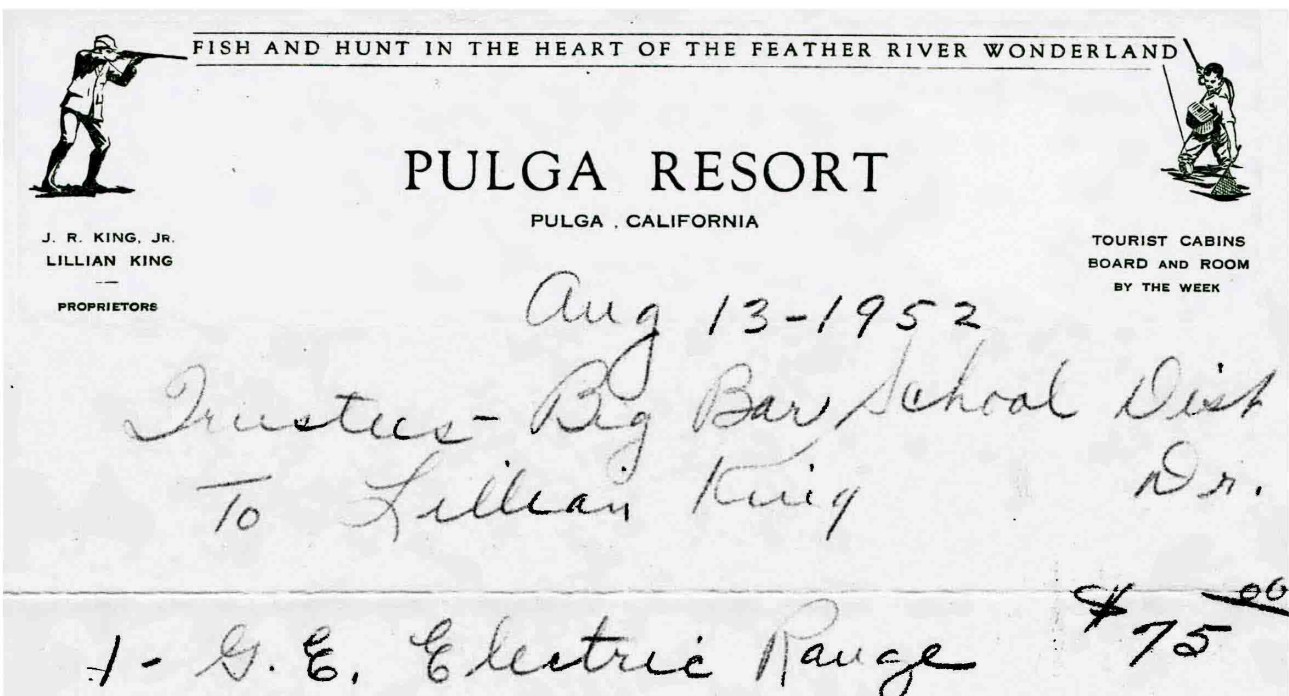 FISH AND HUNT IN THE HEART OF THE FEATHER RIVER WONDERLAND
PULGA RESORT
PULGA, CALIFORNIA
J. R. KING, JR.
LILLIAN KING
PROPRIETORS
TOURIST CABINS
BOARD AND ROOM
BY THE WEEK
Aug 13-1952
Trustees - Big Bar School Dist
To Lillian King Dr.
1 - G.E. Electric Range $75 00